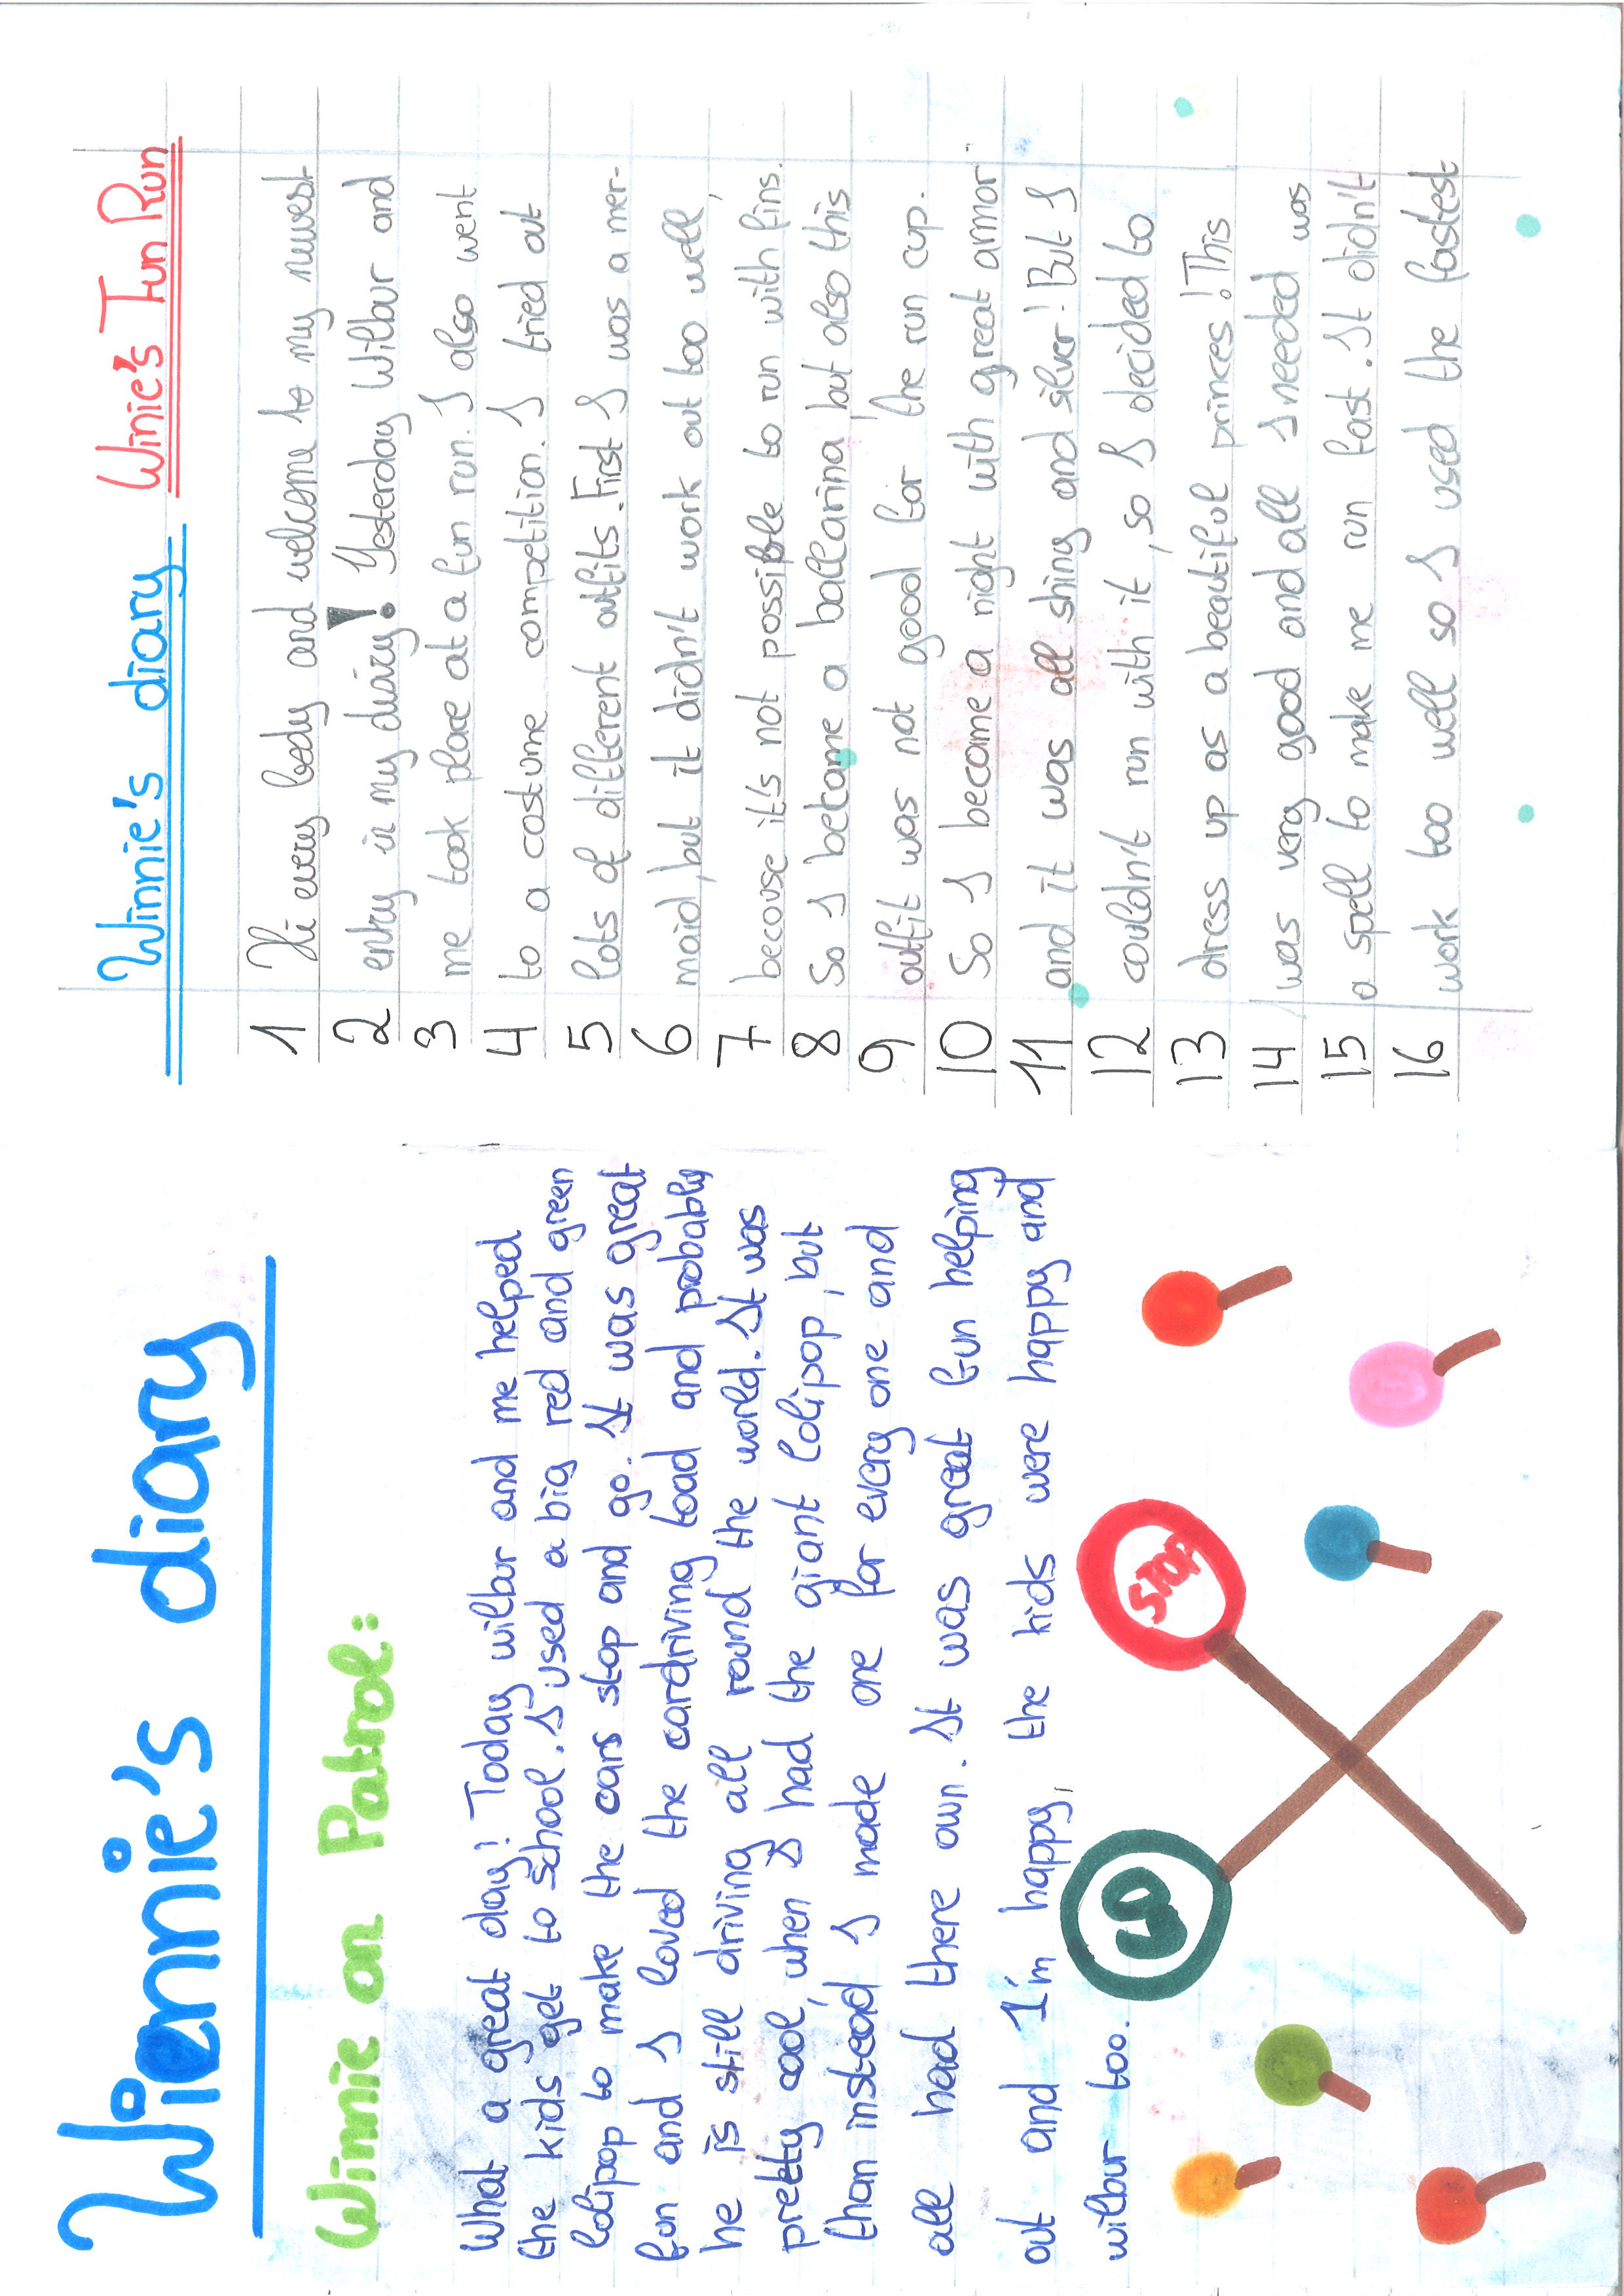 Winnie's diary
Winnie on Patrol:
What a great day! Today wilbur and me helped
the kids get to school. I used a big red and green
lolipop to make the cars stop and go. It was great
fun and I loved the cardriving toad and probably
he is still driving all round the world. It was
pretty cool, when I had the giant lolipop, but
than instead I made one for every one and
all had there own. It was great fun helping
out and I'm happy, the kids were happy and
wilbur too.
GO
STOP
Winnie's diary Winie's Fun Run
1 Hi every body and welcome to my newest
2 entry in my diary! Yesterday Wilbur and
3 me took place at a fun run. I also went
4 to a costume competition. I tried out
5 lots of different outfits. First I was a mer-
6 maid, but it didn't work out too well,
7 becouse it's not possible to run with fins.
8 So I became a ballarina but also this
9 outfit was not good for the run cup.
10 So I become a night with great armor
11 and it was all shing and silver! But I
12 couldn't run with it, so I decided to
13 dress up as a beautiful princes! This
14 was very good and all I needed was
15 a spell to make me run fast. It didn't
16 work too well so I used the fastest